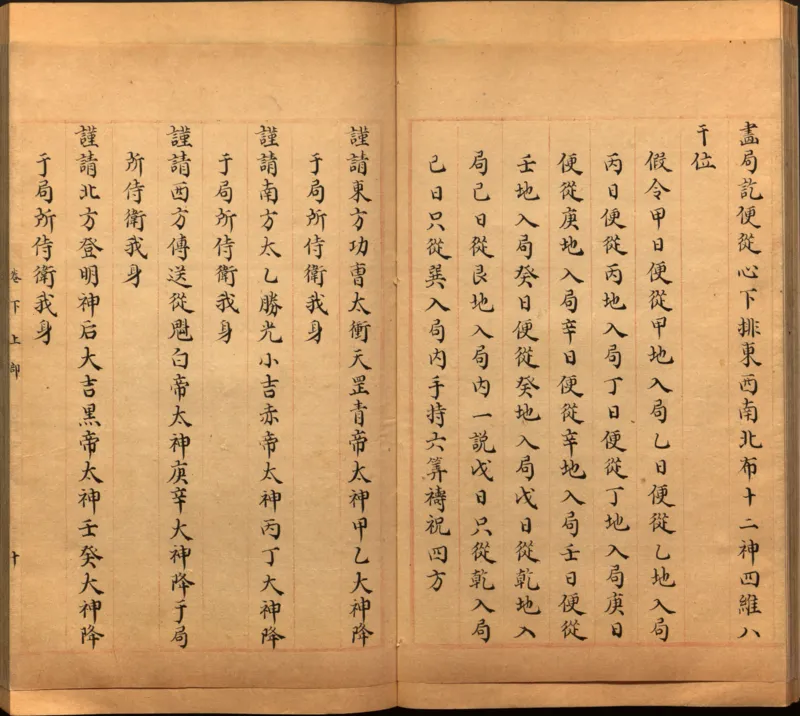 畫局訖便從心下排東西南北布十二神四維八
干位
假令甲日便從甲地入局乙日便從乙地入局
丙日便從丙地入局丁日便從丁地入局庚日
便從庚地入局辛日便從辛地入局壬日便從
壬地入局癸日便從癸地入局戊日從乾地入
局己日從艮地入局内一説戊日只從乾入局
己日只從巽入局内手持六筭禱祝四方
謹請東方功曹太衝天罡青帝太神甲乙大神降
于局所侍衛我身
謹請南方太乙勝光小吉赤帝太神丙丁大神降
于局所侍衛我身
謹請西方傳送從魁白帝太神庚辛大神降于局
所侍衛我身
謹請北方登明神后大吉黑帝太神壬癸大神降
于局所侍衛我身
卷下上 十